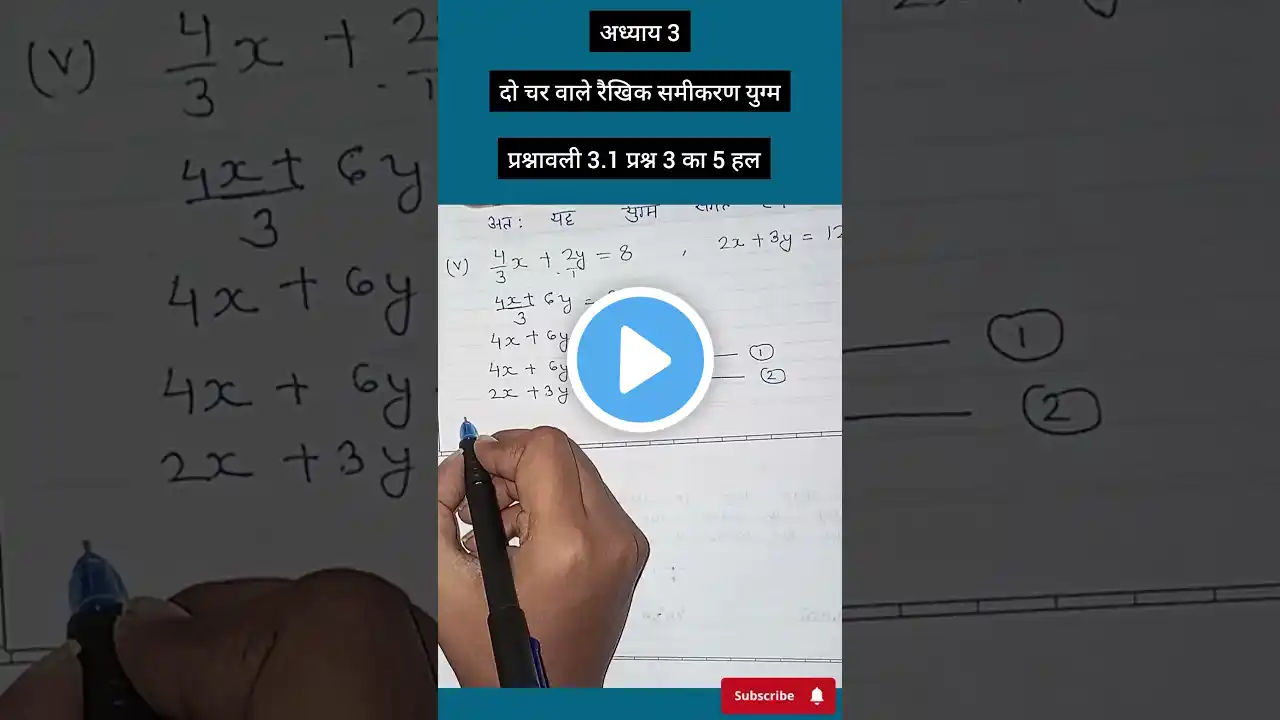 अध्याय 3
दो चर वाले रैखिक समीकरण युग्म
प्रश्नावली 3.1 प्रश्न 3 का 5 हल
अतः यह युग्म
(v) 4/3 x + 2y/1 = 8 , 2x + 3y = 12
4x + 6y / 3 =
4x + 6y
4x + 6y ——— ①
2x + 3y ——— ②
Subscribe